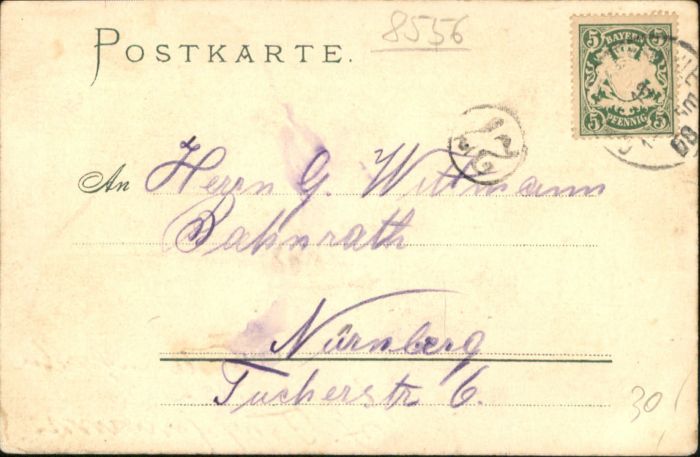 8556
POSTKARTE.
5 BAYERN 5
5 PFENNIG 5
An Herrn G. Wittmann
Bahnrath
Nürnberg
Tucherstr 6.
30